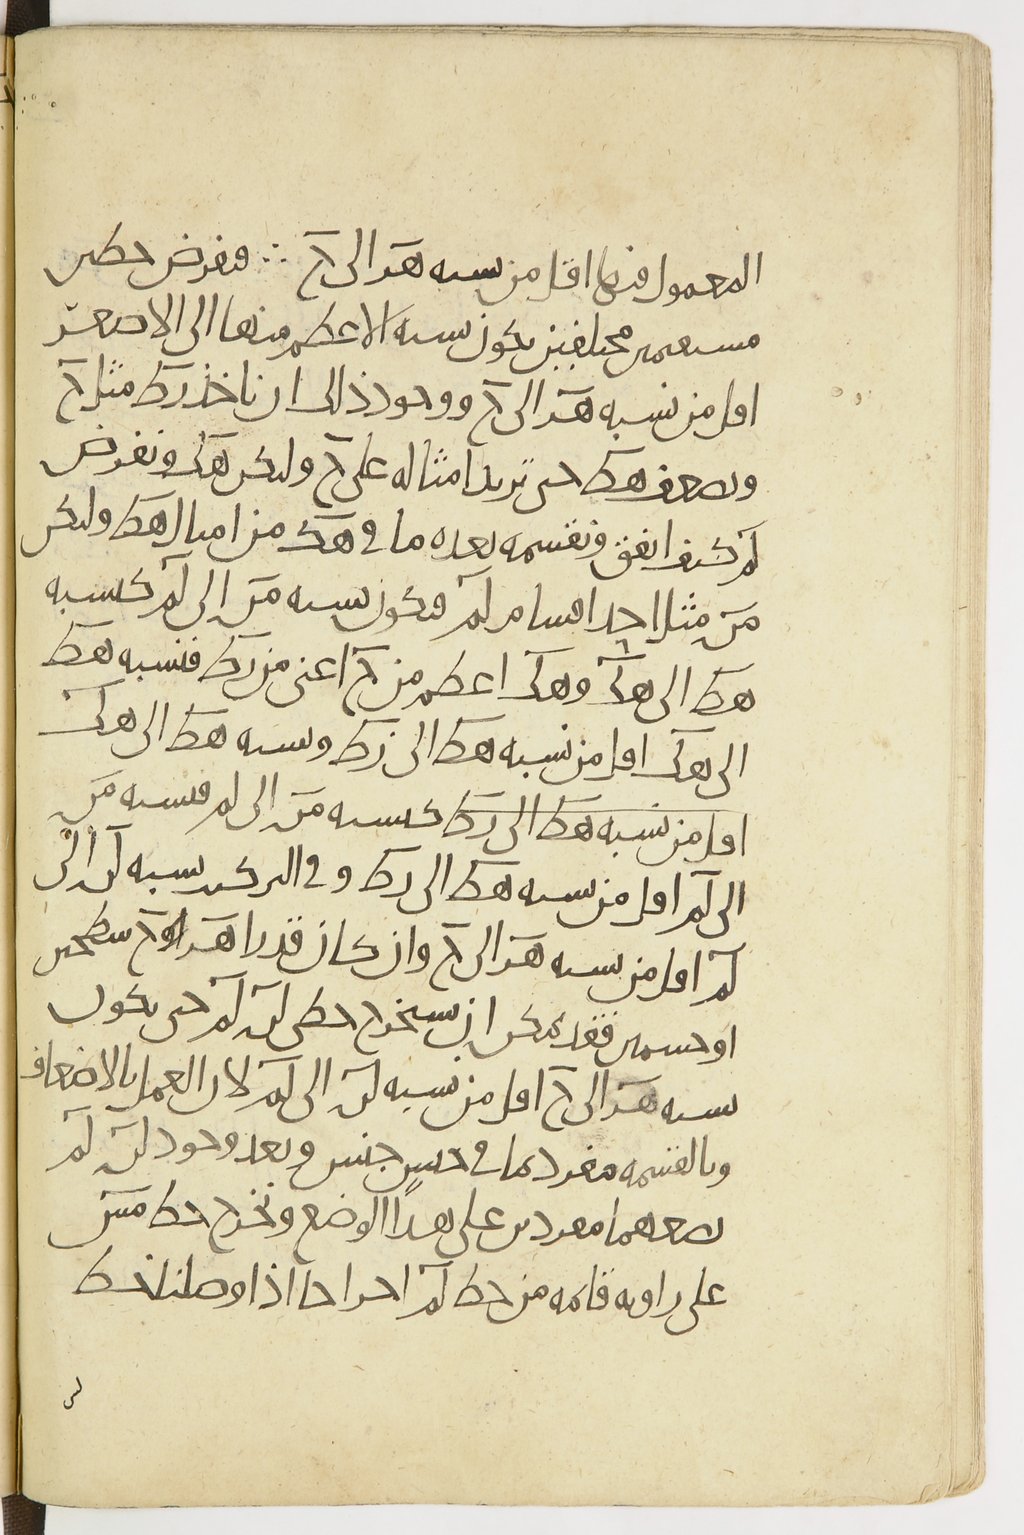 المعمول فيها اقل من نسبه هَز الى حَ ∴ فنفرض خطين
مستقيمين مختلفين يكون نسبه الاعظم منهما الى الاصغر
اقل من نسبه هَز الى حَ ووجود ذلك ان ناخذ زط مثل حَ
ونضعف هط حتى تزيد امثاله على حَ وليكن هك ونفرض
لَم كيف اتفق ونقسمه بعده ما فى هك من امثال هط وليكن
مَن مثل احد اقسام لم فيكون نسبه مَن الى لَم كنسبه
هط الى هك وهك اعظم من حَ اعنى من زط فنسبه هط
الى هك اقل من نسبه هط الى زط ونسبه هط الى هك
اقل من نسبه هط الى زط كنسبه مَن الى لم فنسبه مَن
الى لَم اقل من نسبه هط الى زط وفى التركيب نسبه لَن الى
لَم اقل من نسبه هَز الى حَ وان كان قدرا هَز وحَ سطحين
او جسمين فقد يمكن ان نستخرج خطى لَن لَم حتى يكون
نسبه هَز الى حَ اقل من نسبه لَن الى لَم لان العمل بالاضعاف
وبالقسمه مفرد بما فى جنس جنس وبعد وجود لَن لَم
نضعهما مفردين على هذا الوضع ونخرج خط مَس
على زاويه قائمه من خط لَم اخراجا اذا وصلنا خط